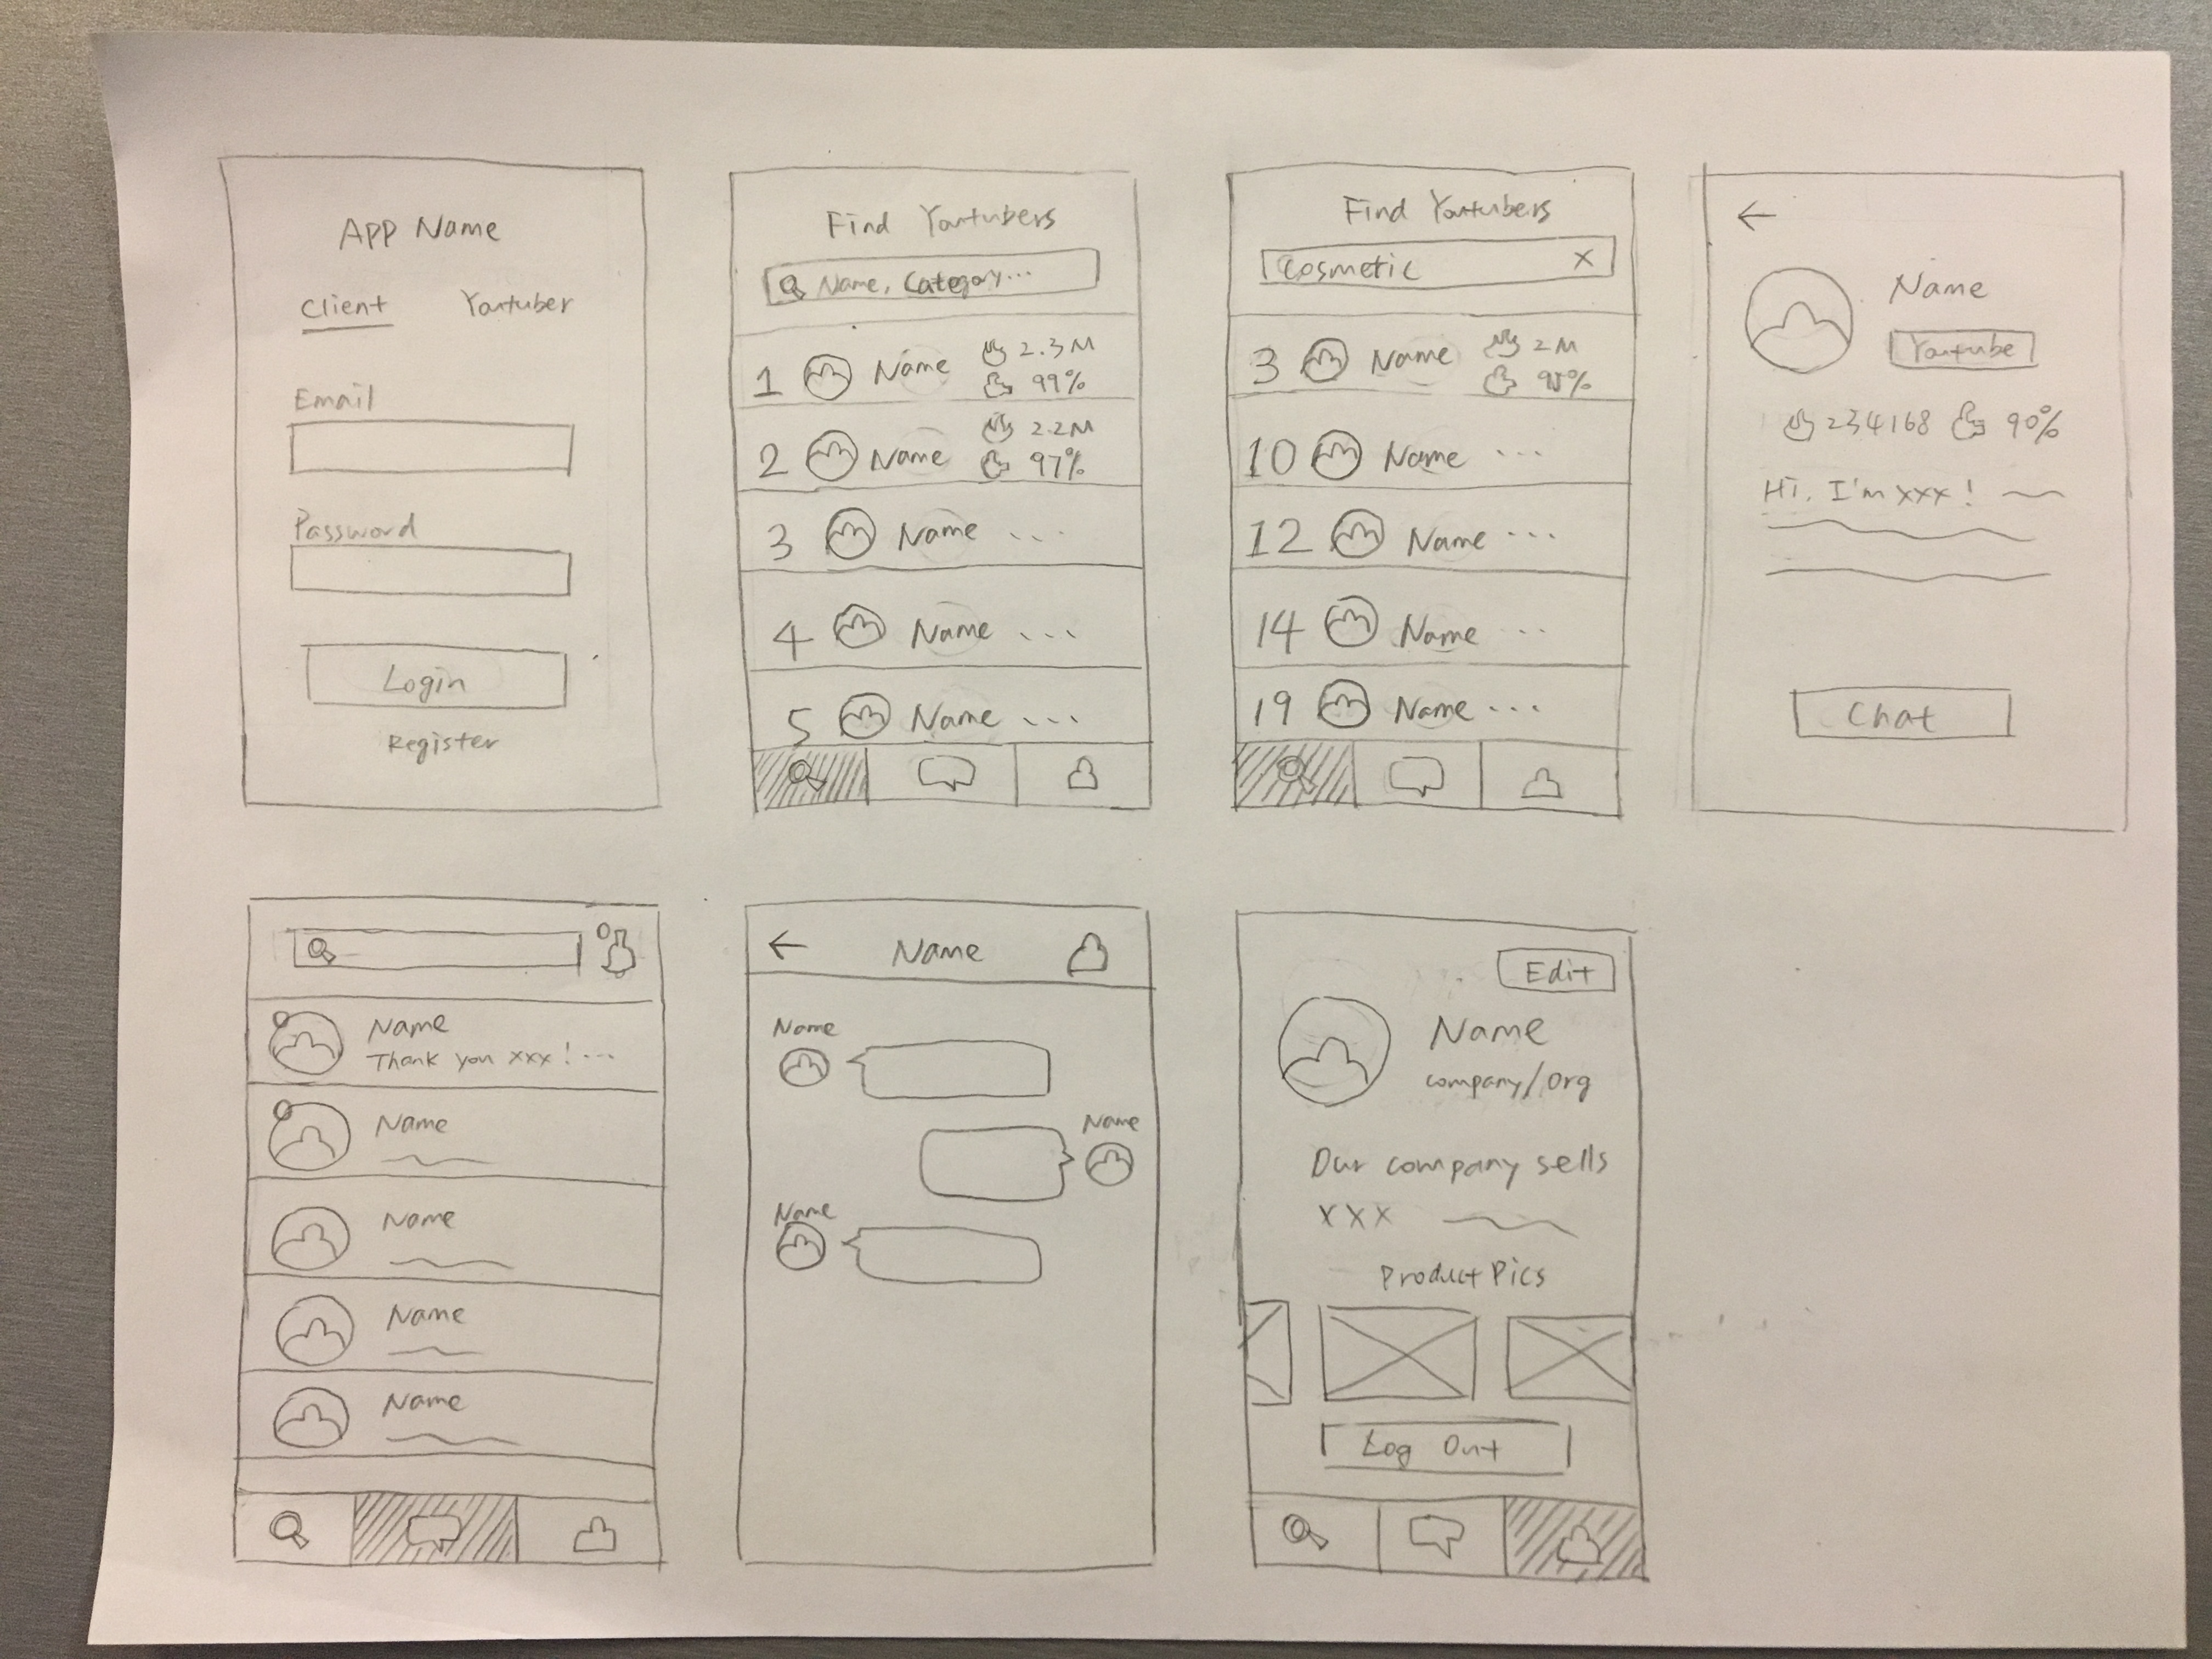 App Name
Client Youtuber
Email
Password
Login
Register
Find Youtubers
Name, Category...
1 Name 2.3M
99%
2 Name 2.2M
97%
3 Name ...
4 Name ...
5 Name ...
Find Youtubers
Cosmetic X
3 Name 2M
98%
10 Name ...
12 Name ...
14 Name ...
19 Name ...
←
Name
Youtube
234168 90%
Hi, I'm xxx!
Chat
Name
Thank you xxx! ...
Name
Name
Name
Name
← Name
Name
Name
Name
Edit
Name
company/org
Our company sells
xxx
Product Pics
Log Out